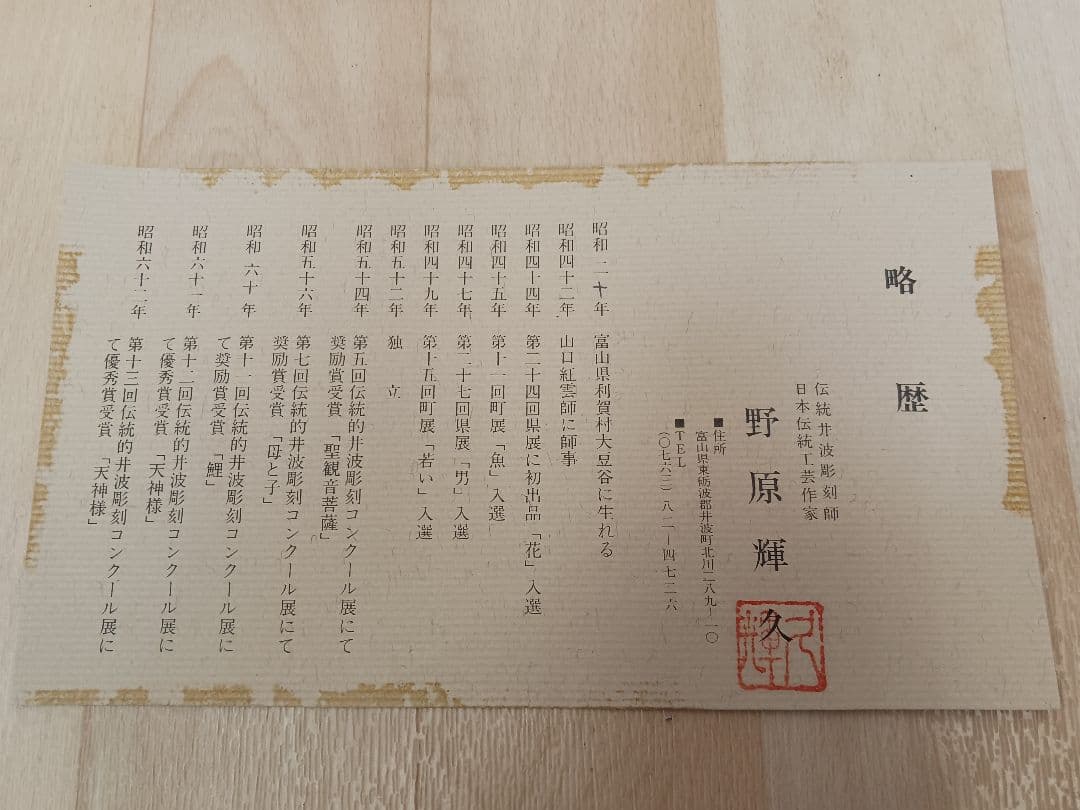 略歴
伝統井波彫刻師
日本伝統工芸作家
野原輝久
■住所
富山県東砺波郡井波町北川二八九ー一〇
■TEL
(〇七六三)八二ー四七二六
昭和二十年 富山県利賀村大豆谷に生れる
昭和四十二年 山口紅雲師に師事
昭和四十四年 第二十四回県展に初出品「花」入選
昭和四十五年 第十一回町展「魚」入選
昭和四十七年 第二十七回県展「男」入選
昭和四十九年 第十五回町展「若い」入選
昭和五十二年 独立
昭和五十四年 第五回伝統的井波彫刻コンクール展にて
奨励賞受賞「聖観音菩薩」
昭和五十六年 第七回伝統的井波彫刻コンクール展にて
奨励賞受賞「母と子」
昭和六十年 第十一回伝統的井波彫刻コンクール展に
て奨励賞受賞「鯉」
昭和六十一年 第十二回伝統的井波彫刻コンクール展に
て優秀賞受賞「天神様」
昭和六十二年 第十三回伝統的井波彫刻コンクール展に
て優秀賞受賞「天神様」